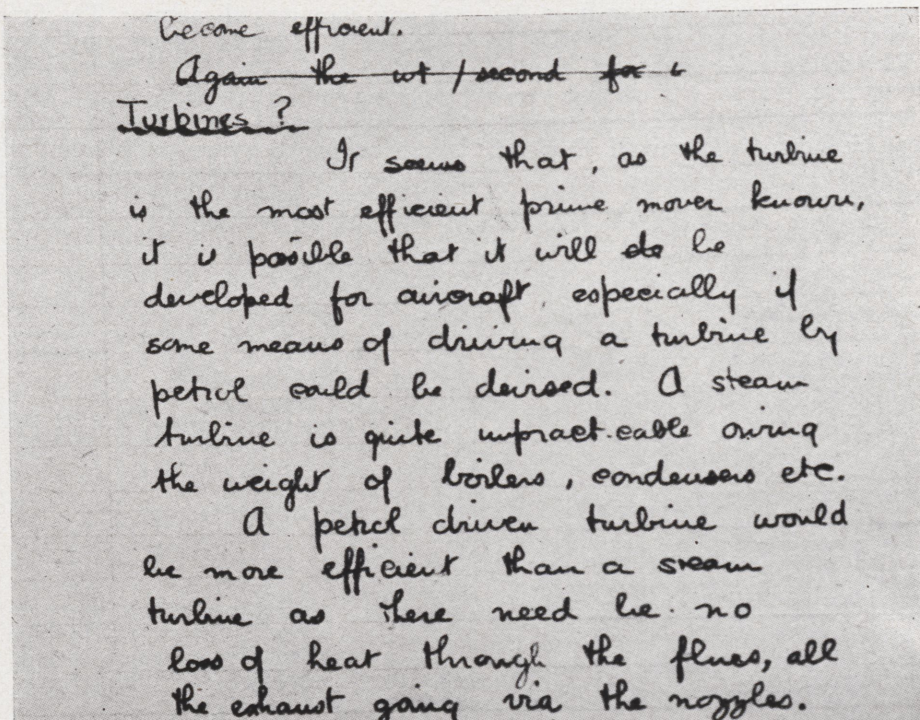 become efficient.
Again the wt / second for
Turbines ?
It seems that, as the turbine
is the most efficient prime mover known,
it is possible that it will do be
developed for aircraft, especially if
some means of driving a turbine by
petrol could be devised. A steam
turbine is quite impracticable owing
the weight of boilers, condensers etc.
A petrol driven turbine would
be more efficient than a steam
turbine as there need be no
loss of heat through the flues, all
the exhaust going via the nozzles.